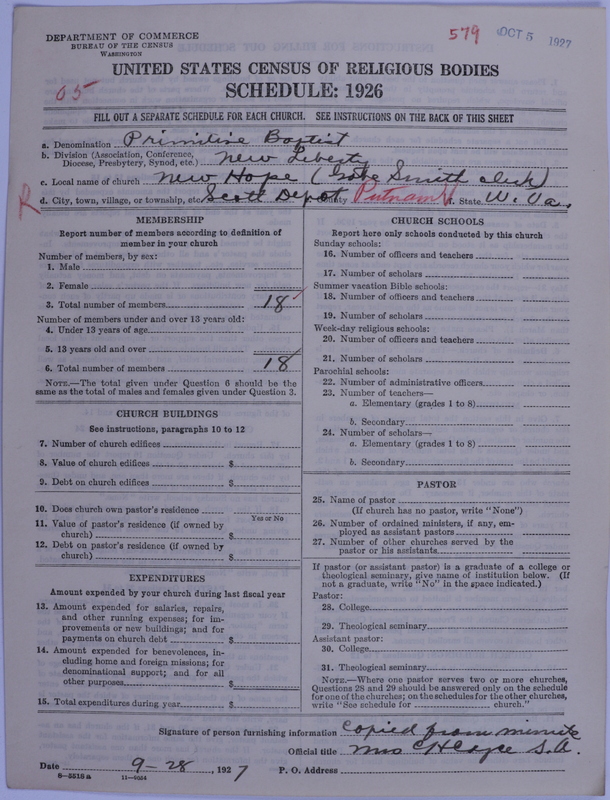 DEPARTMENT OF COMMERCE
BUREAU OF THE CENSUS
WASHINGTON
579 OCT 5 1927
UNITED STATES CENSUS OF RELIGIOUS BODIES
05
SCHEDULE: 1926
FILL OUT A SEPARATE SCHEDULE FOR EACH CHURCH. SEE INSTRUCTIONS ON THE BACK OF THIS SHEET
a. Denomination Primitive Baptist
b. Division (Association, Conference,
Diocese, Presbytery, Synod, etc.) New Liberty
c. Local name of church New Hope (Gabe Smith clerk)
R d. City, town, village, or township, etc. Scott Depot County Putnam f. State W. Va.
MEMBERSHIP
Report number of members according to definition of
member in your church
Number of members, by sex:
1. Male
2. Female
3. Total number of members 18
Number of members under and over 13 years old:
4. Under 13 years of age
5. 13 years old and over
6. Total number of members 18
NOTE.—The total given under Question 6 should be the
same as the total of males and females given under Question 3.
CHURCH BUILDINGS
See instructions, paragraphs 10 to 12
7. Number of church edifices
8. Value of church edifices $
9. Debt on church edifices $
10. Does church own pastor's residence
Yes or No
11. Value of pastor's residence (if owned by
church) $
12. Debt on pastor's residence (if owned by
church) $
EXPENDITURES
Amount expended by your church during last fiscal year
13. Amount expended for salaries, repairs,
and other running expenses; for im-
provements or new buildings; and for
payments on church debt $
14. Amount expended for benevolences, in-
cluding home and foreign missions; for
denominational support; and for all
other purposes $
15. Total expenditures during year $
CHURCH SCHOOLS
Report here only schools conducted by this church
Sunday schools:
16. Number of officers and teachers
17. Number of scholars
Summer vacation Bible schools:
18. Number of officers and teachers
19. Number of scholars
Week-day religious schools:
20. Number of officers and teachers
21. Number of scholars
Parochial schools:
22. Number of administrative officers
23. Number of teachers—
a. Elementary (grades 1 to 8)
b. Secondary
24. Number of scholars—
a. Elementary (grades 1 to 8)
b. Secondary
PASTOR
25. Name of pastor
(If church has no pastor, write "None")
26. Number of ordained ministers, if any, em-
ployed as assistant pastors
27. Number of other churches served by the
pastor or his assistants
If pastor (or assistant pastor) is a graduate of a college or
theological seminary, give name of institution below. (If
not a graduate, write "No" in the space indicated.)
Pastor:
28. College
29. Theological seminary
Assistant pastor:
30. College
31. Theological seminary
NOTE.—Where one pastor serves two or more churches,
Questions 28 and 29 should be answered only on the schedule
for one of the churches; on the schedules for the other churches,
write "See schedule for church."
Signature of person furnishing information Copied from minute
Official title Mrs C H S.A.
Date 9-28, 1927 P. O. Address
8-5518a 11-9054